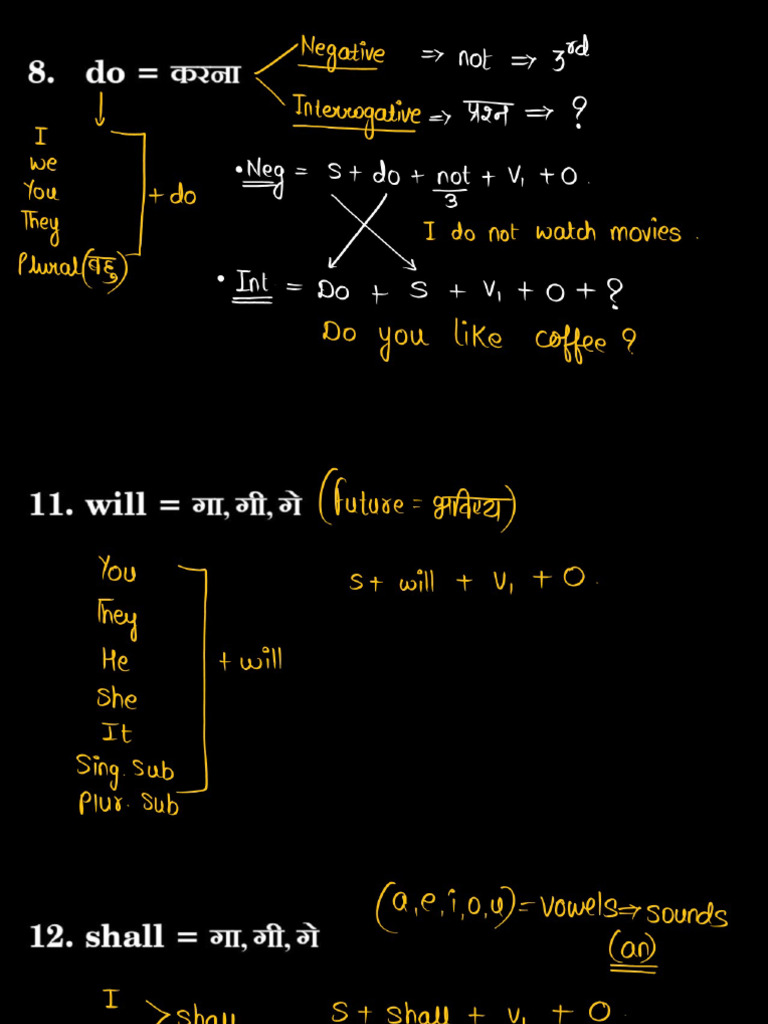 8. do = करना
Negative ⇒ not ⇒ 3rd
Interrogative ⇒ प्रश्न ⇒ ?
I
we
You
They
Plural (बहु)
+ do
• Neg = S + do + not + V₁ + O.
3
I do not watch movies.
• Int = Do + S + V₁ + O + ?
Do you like coffee?
11. will = गा, गी, गे (Future = भविष्य)
You
They
He
She
It
Sing. Sub
Plur. Sub
+ will
S + will + V₁ + O.
(a, e, i, o, u) = vowels ⇒ sounds
(an)
12. shall = गा, गी, गे
I
> shall
S + shall + V₁ + O.